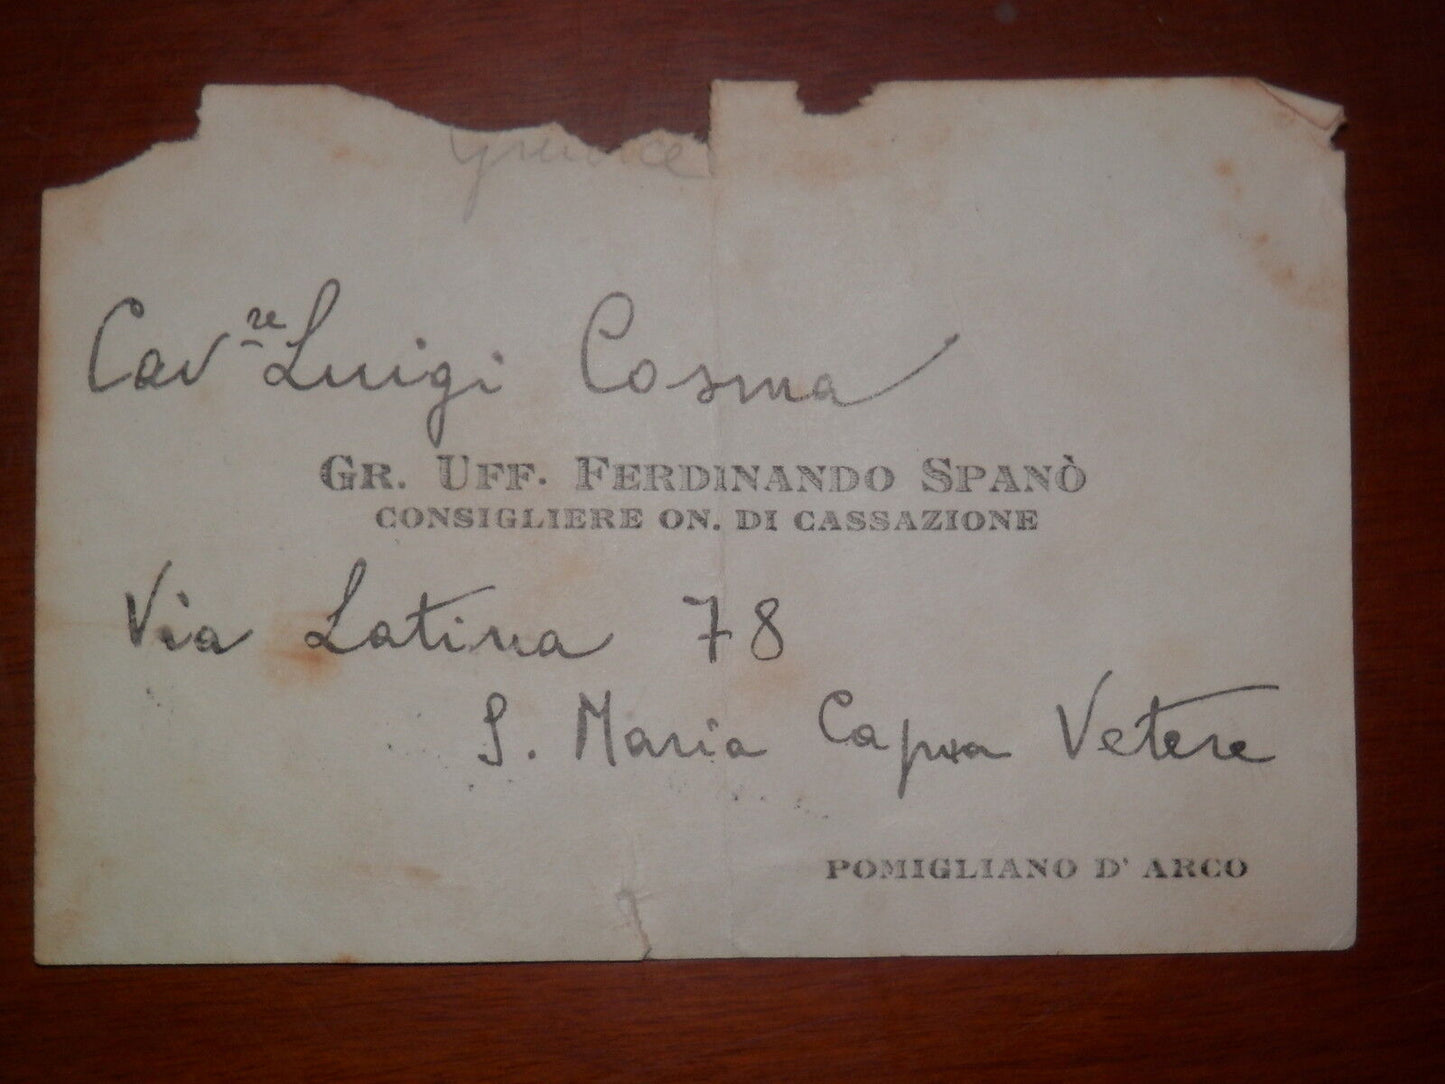 Cav.re Luigi Cosma
GR. UFF. FERDINANDO SPANÒ
CONSIGLIERE ON. DI CASSAZIONE
Via Latina 78
S. Maria Capua Vetere
POMIGLIANO D' ARCO